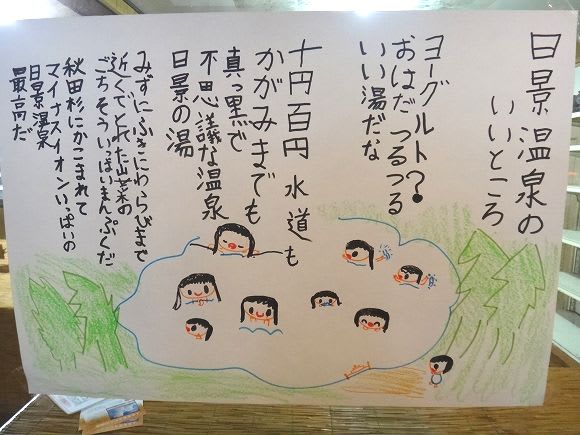 日景温泉の
いいところ
ヨーグルト?
おはだつるつる
いい湯だな
十円百円水道も
かがみまでも
真っ黒で
不思議な温泉
日景の湯
みずにふきにわらびまで
近くでとれた山菜の
ごちそういっぱいまんぷくだ
秋田杉にかこまれて
マイナスイオンいっぱいの
日景温泉
最高だ